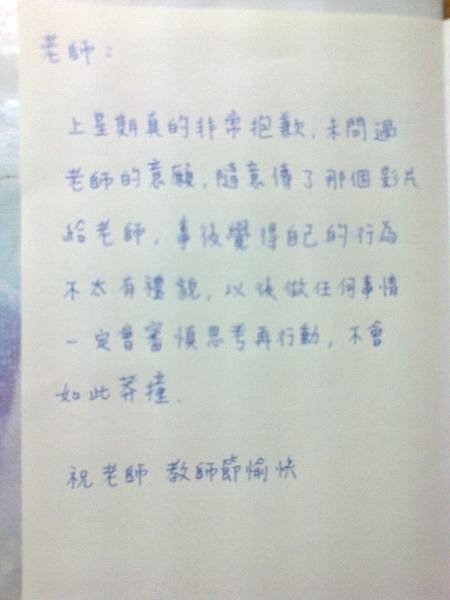 老師：
上星期真的非常抱歉，未問過
老師的意願，隨意傳了那個影片
給老師，事後覺得自己的行為
不太有禮貌，以後做任何事情
一定會審慎思考再行動，不會
如此莽撞.
祝老師 教師節愉快